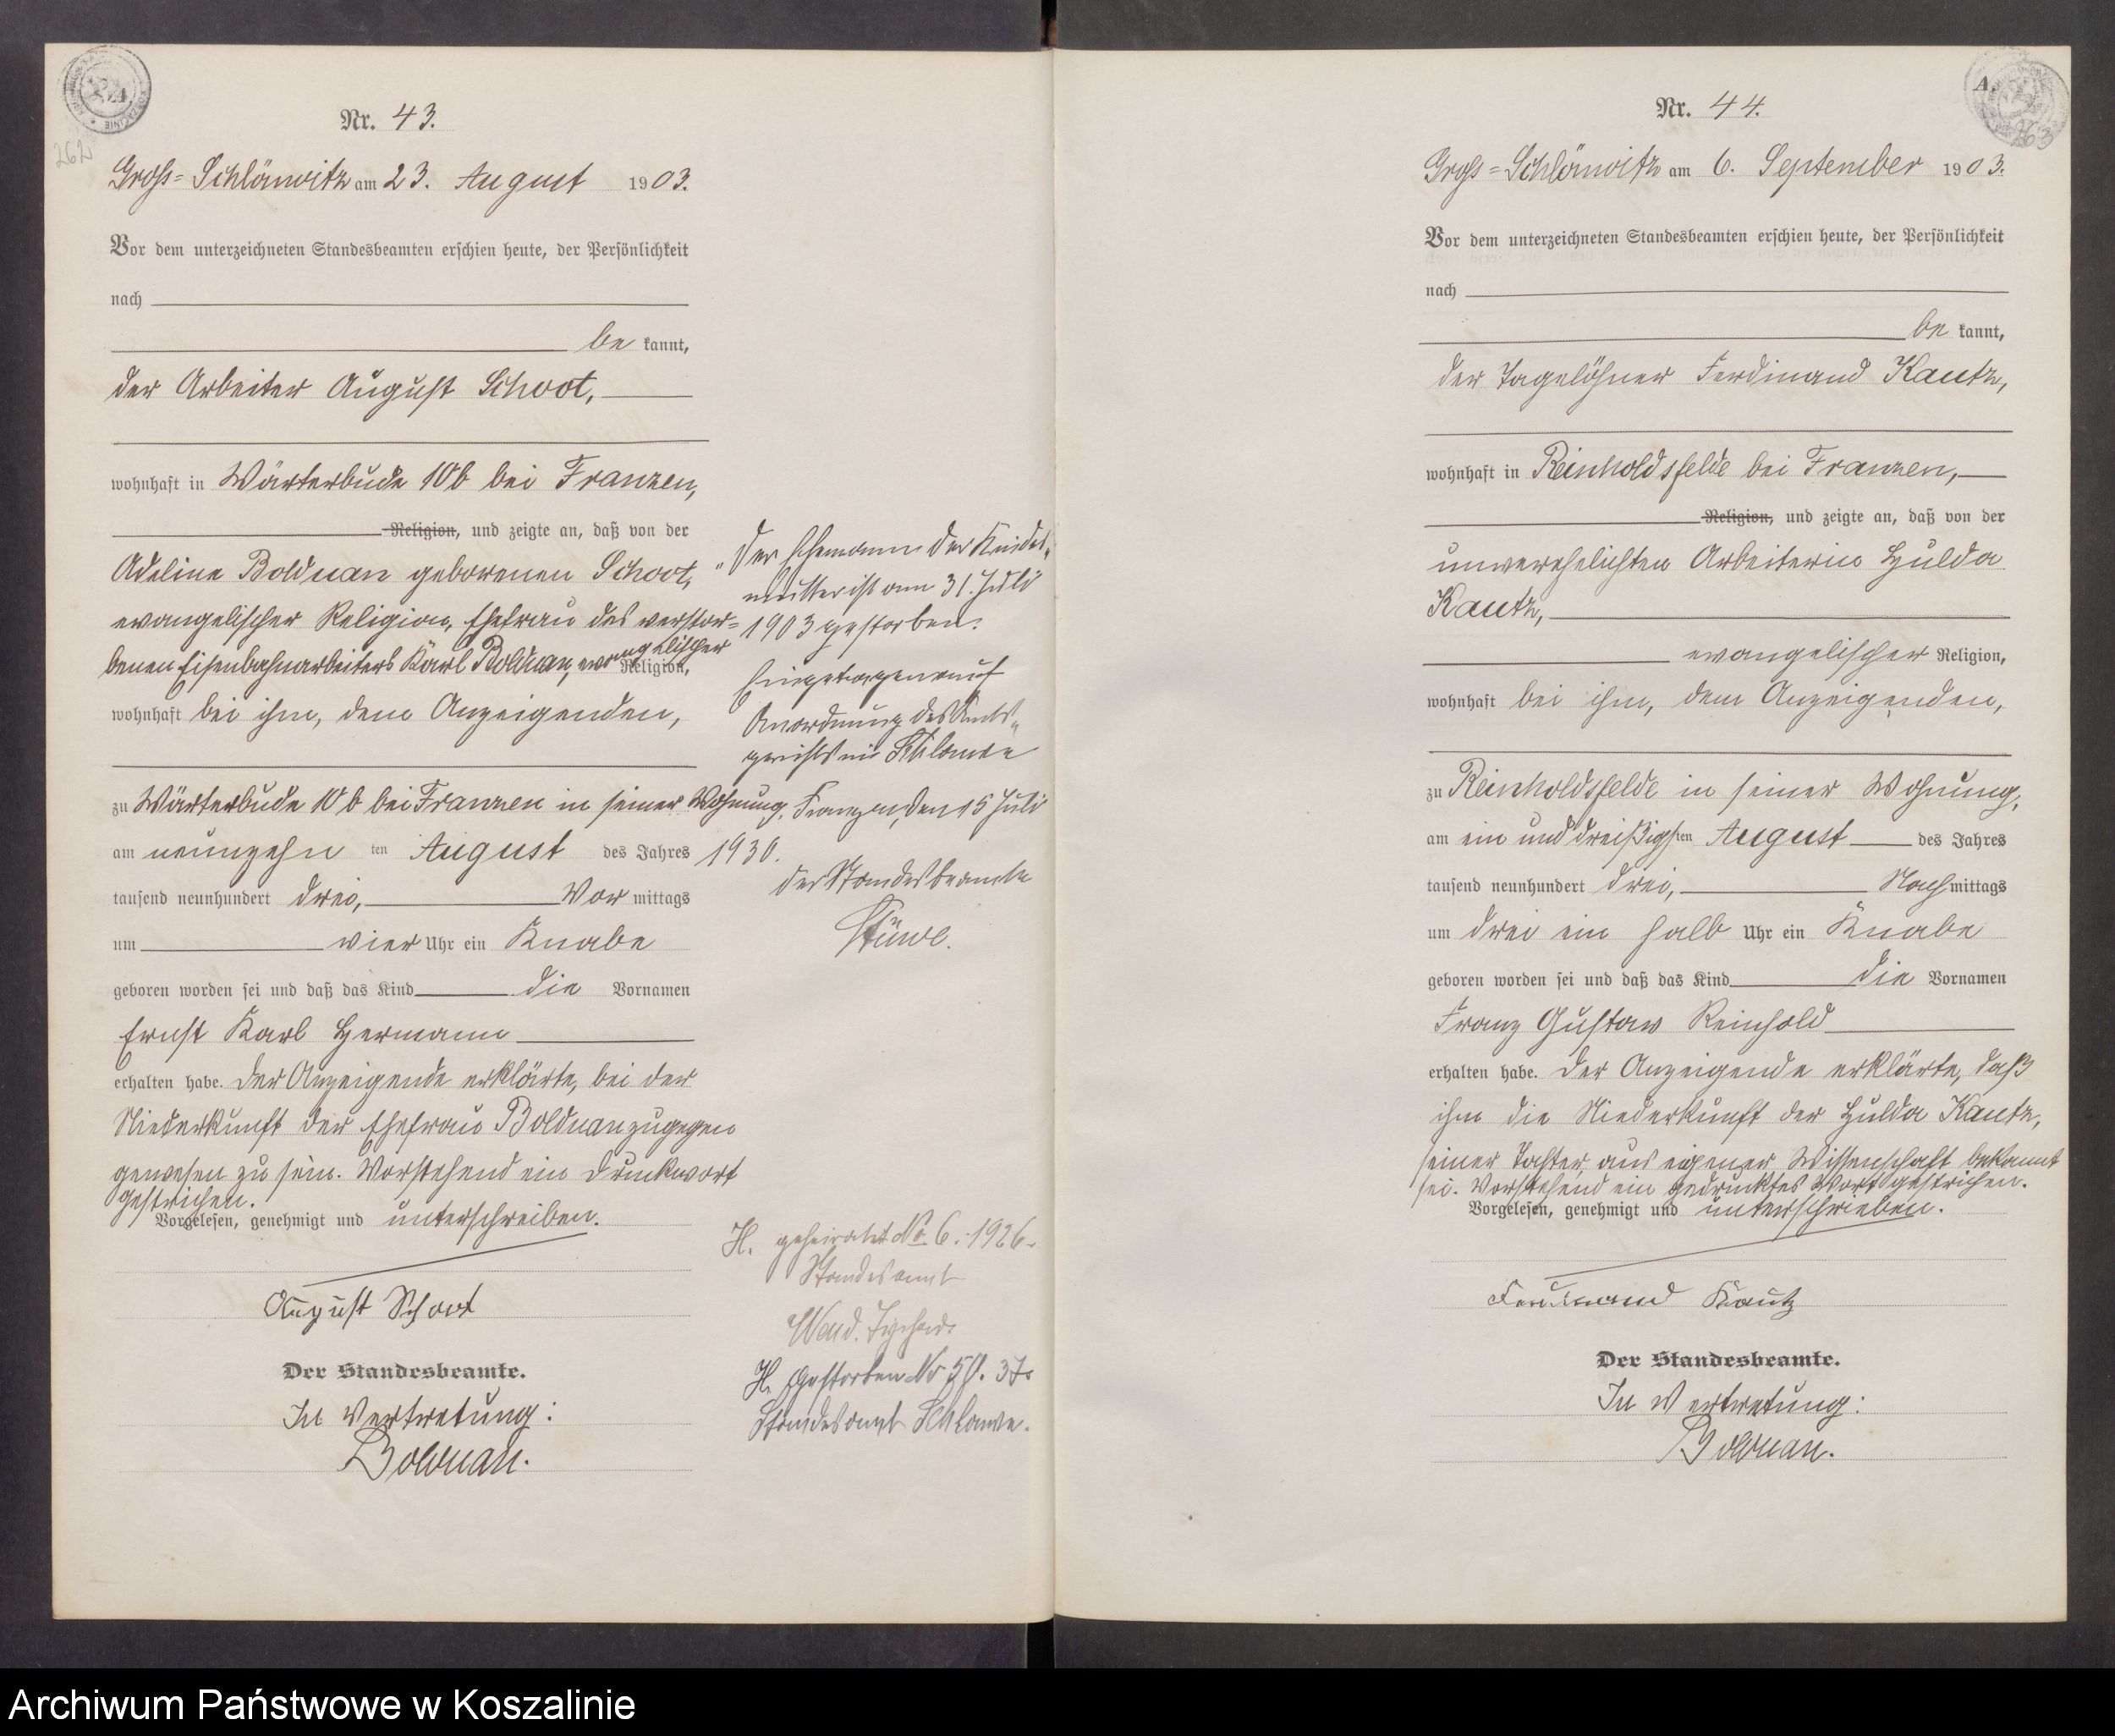 Nr. 43.
262
Gross=Schlönwitz am 23. August 1903.
Vor dem unterzeichneten Standesbeamten erschien heute, der Persönlichkeit
nach
be kannt,
der Arbeiter August Schoot,
wohnhaft in Wärterbude 10b bei Franzen,
Religion, und zeigte an, daß von der
Adeline Bolduan geborenen Schoot,
evangelischer Religion, Ehefrau des verstor=
benen Eisenbahnarbeiters Karl Bolduan, evangelischer Religion,
wohnhaft bei ihm, dem Anzeigenden,
zu Wärterbude 10b bei Franzen in seiner Wohnung,
am neunzehn ten August des Jahres
tausend neunhundert drei, Vor mittags
um vier Uhr ein Knabe
geboren worden sei und daß das Kind die Vornamen
Ernst Karl Hermann
erhalten habe. Der Anzeigende erklärte, bei der
Niederkunft der Ehefrau Bolduan zugegen
gewesen zu sein. Vorstehend ein Druckwort
gestrichen.
Vorgelesen, genehmigt und unterschreiben.
August Schoot
Der Standesbeamte.
In Vertretung:
Bolduan.
"Der Ehemann der Kindes-
mutter ist am 31. Juli
1903 gestorben.
Eingetragen auf
Anordnung des Amts-
gerichts in Schlawe
Franzen, den 15 Juli
1930.
Der Standesbeamte
Stüwe.
H. geheiratet No 6. 1926.
Standesamt
Wend.
H. Gestorben No 50. 37.
Standesamt Schlawe.
A.
Nr. 44.
263
Gross=Schlönwitz am 6. September 1903.
Vor dem unterzeichneten Standesbeamten erschien heute, der Persönlichkeit
nach
be kannt,
der Tagelöhner Ferdinand Kautz,
wohnhaft in Reinholdsfelde bei Franzen,
Religion, und zeigte an, daß von der
unverehelichten Arbeiterin Hulda
Kautz,
evangelischer Religion,
wohnhaft bei ihm, dem Anzeigenden,
zu Reinholdsfelde in seiner Wohnung,
am ein und dreißigsten August des Jahres
tausend neunhundert drei, Nach mittags
um drei ein halb Uhr ein Knabe
geboren worden sei und daß das Kind die Vornamen
Franz Gustav Reinhold
erhalten habe. Der Anzeigende erklärte, daß
ihm die Niederkunft der Hulda Kautz,
seiner Tochter, aus eigener Wissenschaft bekannt
sei. Vorstehend ein gedrucktes Wort gestrichen.
Vorgelesen, genehmigt und unterschrieben.
Ferdinand Kautz
Der Standesbeamte.
In Vertretung:
Bolduan.
Archiwum Państwowe w Koszalinie